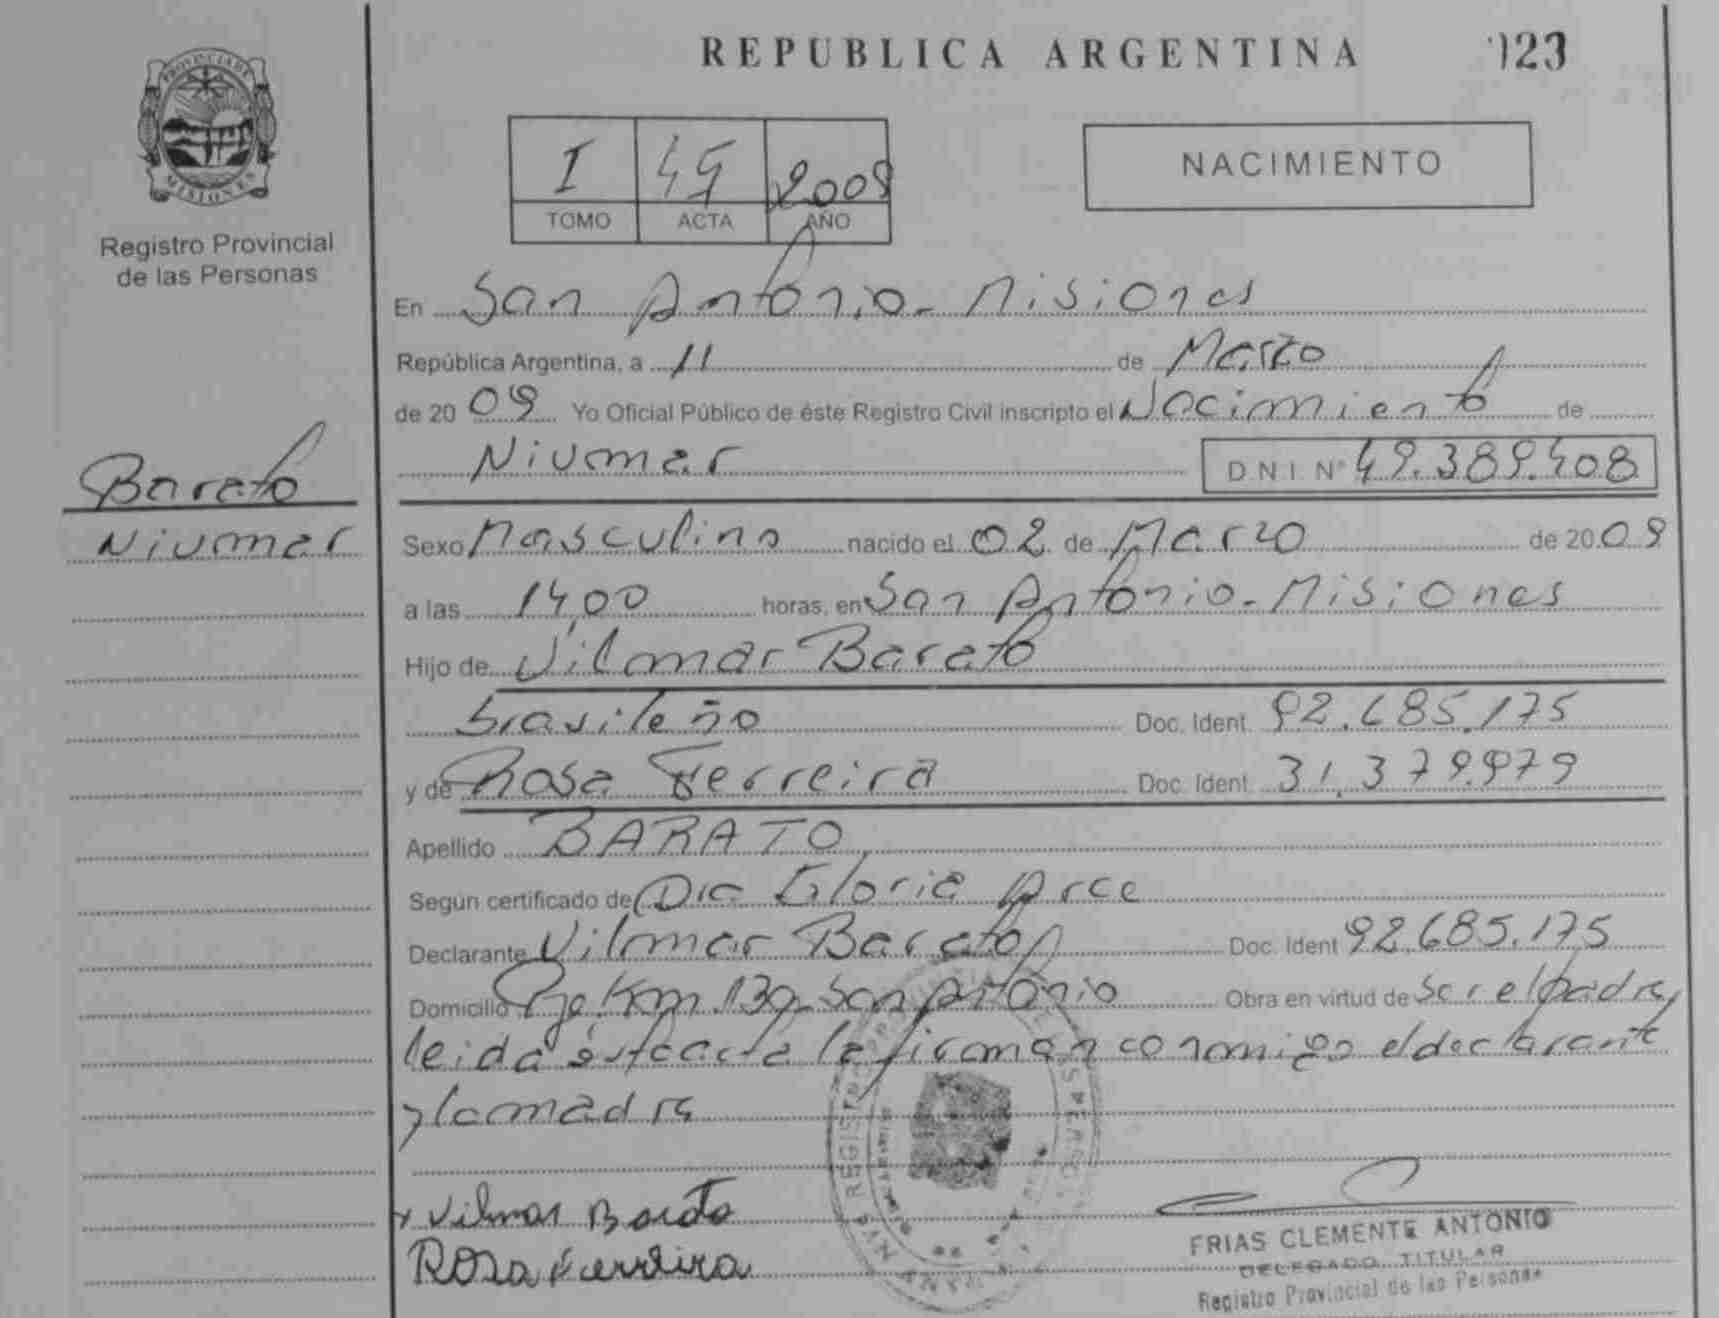 REPUBLICA ARGENTINA 023
PROVINCIA DE
MISIONES
Registro Provincial
de las Personas
I 45 2009
TOMO ACTA AÑO
NACIMIENTO
En San Antonio - Misiones
República Argentina, a 11 de Marzo
de 20 09 Yo Oficial Público de éste Registro Civil inscripto el Nacimiento de
Niumar D.N.I. Nº 49.389.408
Barato
Niumar
Sexo Masculino nacido el 02 de Marzo de 20 09
a las 14,00 horas, en San Antonio - Misiones
Hijo de Vilmar Barato
brasileño Doc. Ident. 92.685.175
y de Rosa Ferreira Doc. Ident. 31.379.979
Apellido BARATO
Según certificado de Dra Gloria Arce
Declarante Vilmar Barato Doc. Ident 92.685.175
Domicilio Pje. Km. 130 San Antonio Obra en virtud de Ser el padre
leida ésta acta la firman conmigo el declarante
y la madre
x Vilmar Barato
Rosa Ferreira
FRIAS CLEMENTE ANTONIO
DELEGADO TITULAR
Registro Provincial de las Personas